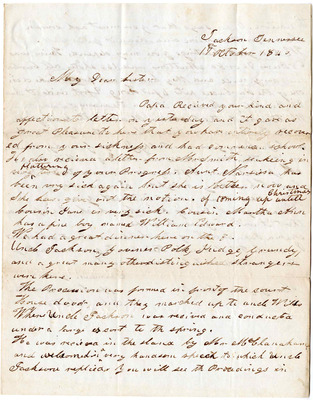 Jackson Tennessee
October 184
My Dear Sister
Papa Received your kind and
affectionate letter on yesterday and it gave us
great pleasure to hear that you have entirely recover
ed from your sickness and had commenced school.
received a letter from Mrs Smith speaking in
flattering
of your Progress. Aunt Narcissa has
been very sick again but she is better now and
She has given out the notion of coming up until Christmas
Cousin Jane is very sick. Cousin Martha Ann
has a fine boy named William Edward.
We had a great dinner here on the 8
Uncle Jackson, Governor Polk, Judge Grundy,
and a great many other distinguished strangers
were here.
The Procession was formed in front of the court
House doors, and they marched up to uncle
When Uncle Jackson was recived and conducted
under a large escort to the spring.
He was recived in the stand by Mr McClanahan
and welcomed in a very handsom speech to which Uncle
Jackson replied. You will see the Proceedings in